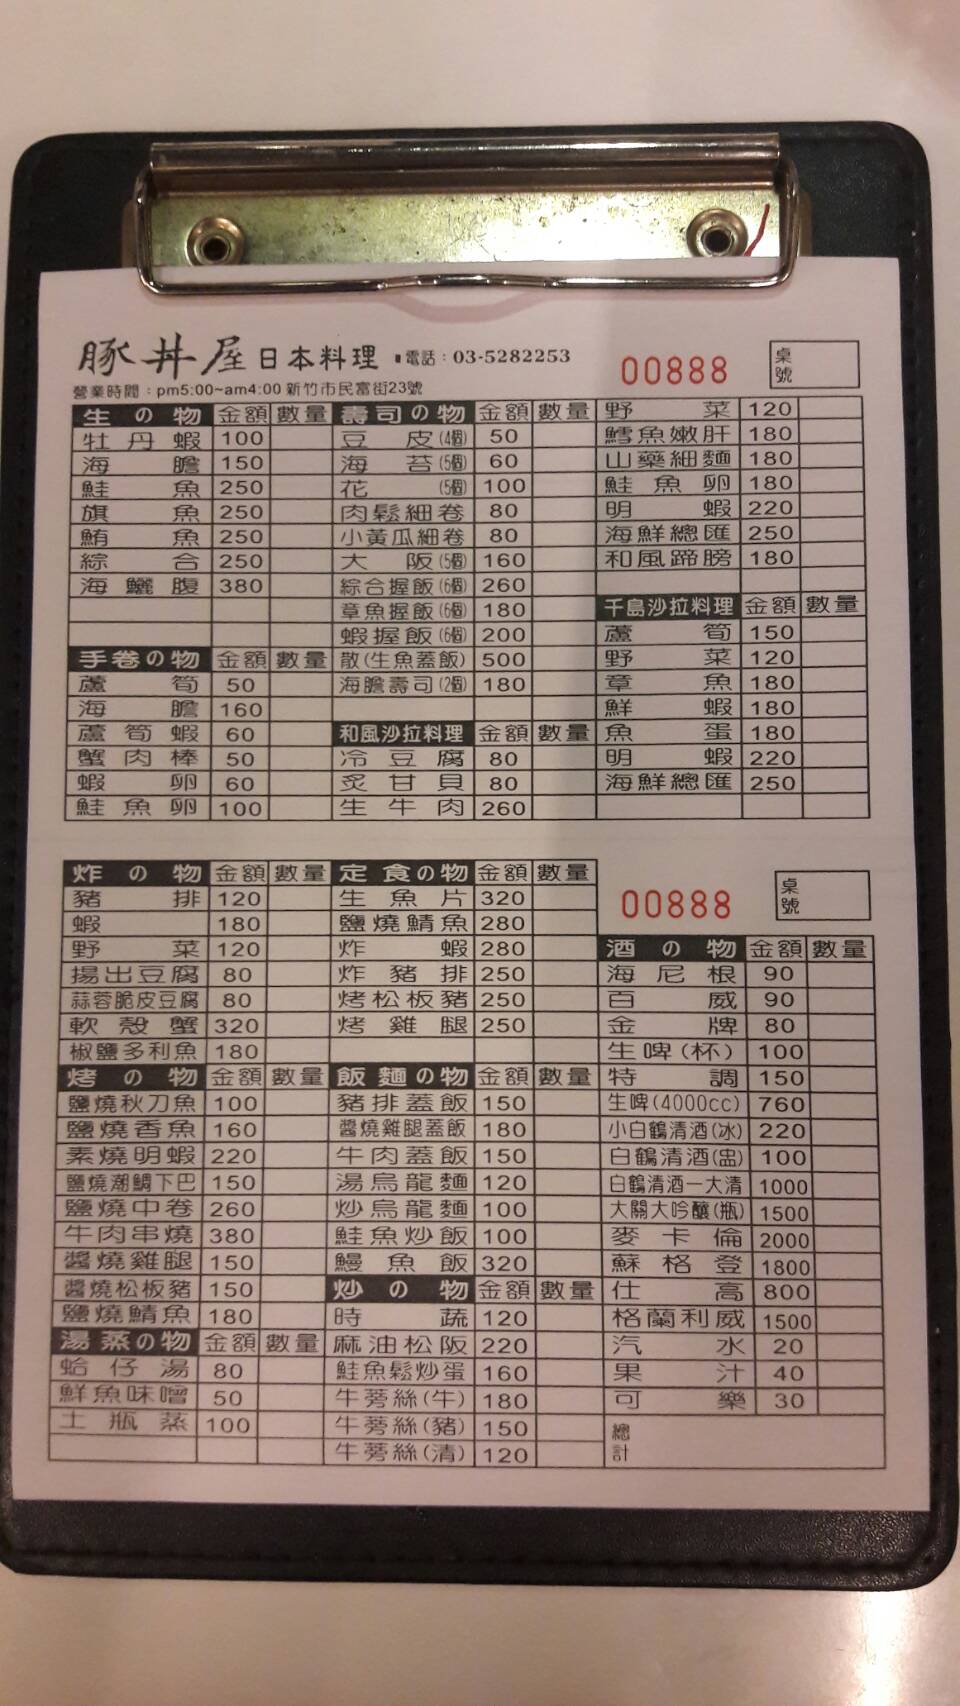 豚丼屋 日本料理 ▪電話：03-5282253
00888
桌號
營業時間：pm5:00~am4:00 新竹市民富街23號
生の物 金額 數量
牡丹蝦 100
海膽 150
鮭魚 250
旗魚 250
鮪魚 250
綜合 250
海鱺腹 380
手卷の物 金額 數量
蘆筍 50
海膽 160
蘆筍蝦 60
蟹肉棒 50
蝦卵 60
鮭魚卵 100
壽司の物 金額 數量
豆皮(4個) 50
海苔(5個) 60
花(5個) 100
肉鬆細卷 80
小黃瓜細卷 80
大阪(5個) 160
綜合握飯(6個) 260
章魚握飯(6個) 180
蝦握飯(6個) 200
散(生魚蓋飯) 500
海膽壽司(2個) 180
和風沙拉料理 金額 數量
冷豆腐 80
炙甘貝 80
生牛肉 260
野菜 120
鱈魚嫩肝 180
山藥細麵 180
鮭魚卵 180
明蝦 220
海鮮總匯 250
和風蹄膀 180
千島沙拉料理 金額 數量
蘆筍 150
野菜 120
章魚 180
鮮蝦 180
魚蛋 180
明蝦 220
海鮮總匯 250
炸の物 金額 數量
豬排 120
蝦 180
野菜 120
揚出豆腐 80
蒜蓉脆皮豆腐 80
軟殼蟹 320
椒鹽多利魚 180
烤の物 金額 數量
鹽燒秋刀魚 100
鹽燒香魚 160
素燒明蝦 220
鹽燒潮鯛下巴 150
鹽燒中卷 260
牛肉串燒 380
醬燒雞腿 150
醬燒松板豬 150
鹽燒鯖魚 180
湯蒸の物 金額 數量
蛤仔湯 80
鮮魚味噌 50
土瓶蒸 100
定食の物 金額 數量
生魚片 320
鹽燒鯖魚 280
炸蝦 280
炸豬排 250
烤松板豬 250
烤雞腿 250
飯麵の物 金額 數量
豬排蓋飯 150
醬燒雞腿蓋飯 180
牛肉蓋飯 150
湯烏龍麵 120
炒烏龍麵 100
鮭魚炒飯 100
鰻魚飯 320
炒の物 金額 數量
時蔬 120
麻油松阪 220
鮭魚鬆炒蛋 160
牛蒡絲(牛) 180
牛蒡絲(豬) 150
牛蒡絲(清) 120
00888
桌號
酒の物 金額 數量
海尼根 90
百威 90
金牌 80
生啤(杯) 100
特調 150
生啤(4000cc) 760
小白鶴清酒(冰) 220
白鶴清酒(盅) 100
白鶴清酒一大清 1000
大關大吟釀(瓶) 1500
麥卡倫 2000
蘇格登 1800
仕高 800
格蘭利威 1500
汽水 20
果汁 40
可樂 30
總計